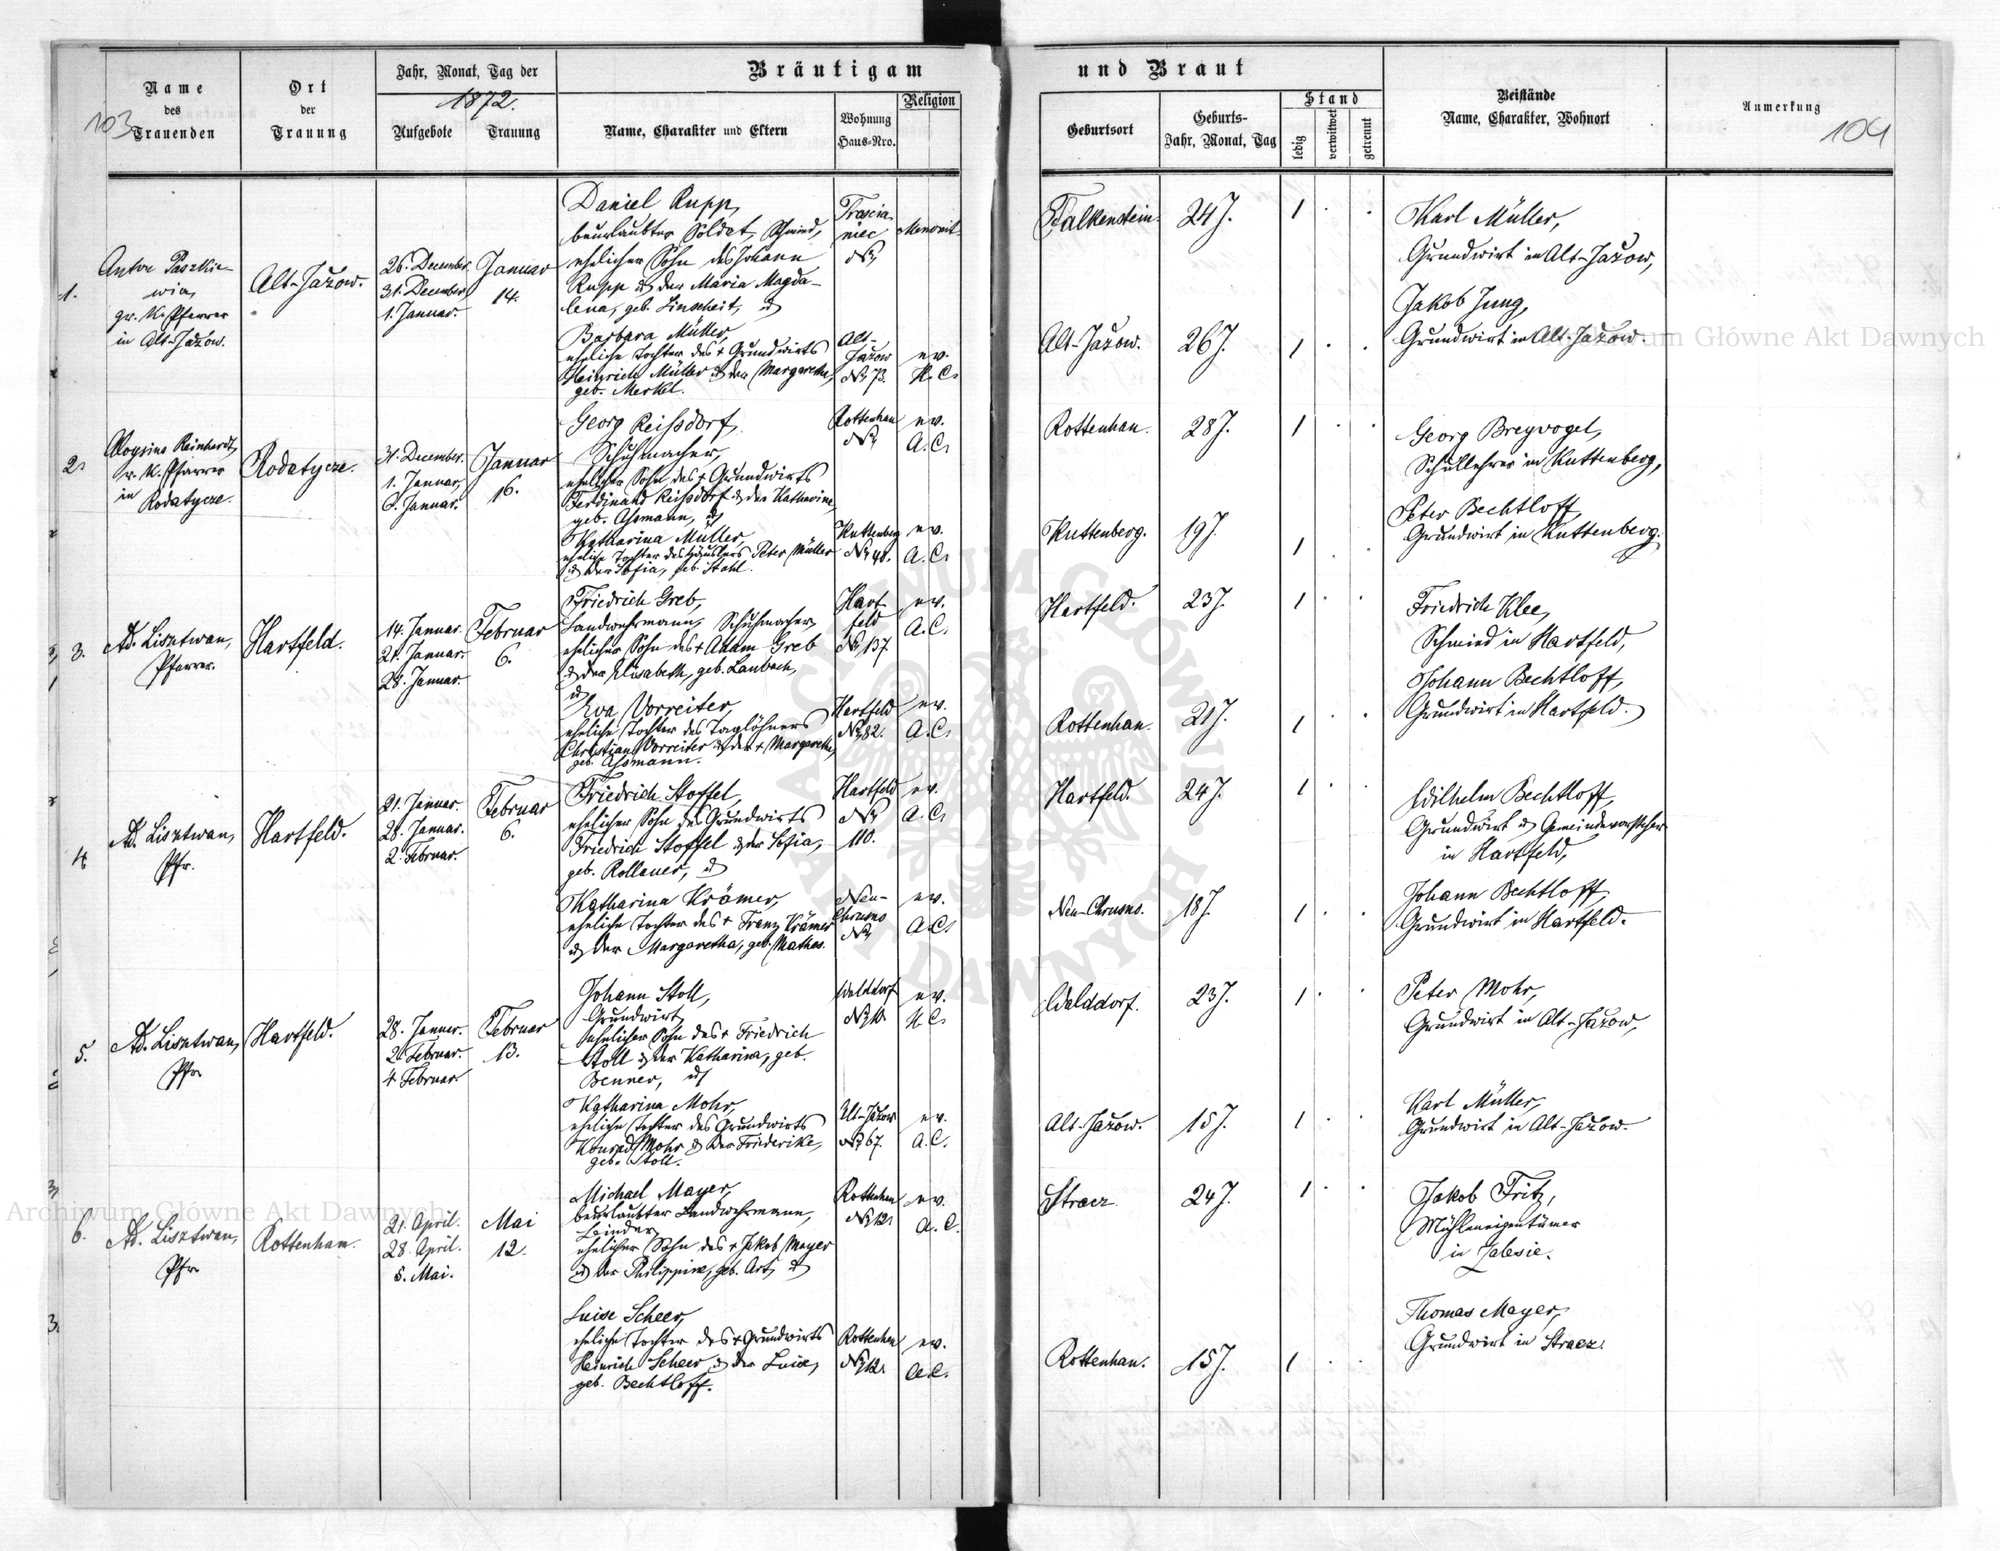 Bräutigam und Braut
Name des Trauenden
Ort der Trauung
Jahr, Monat, Tag der
1872.
Aufgebote
Trauung
Name, Charakter und Eltern
Wohnung Haus-Nro.
Religion
Geburtsort
Geburts-Jahr, Monat, Tag
Stand
ledig
verwitwet
getrennt
Beistände
Name, Charakter, Wohnort
Anmerkung
103
104
1.
Anton Paszkie-
wicz,
gr. k. Pfarrer
in Alt-Jażow.
Alt-Jażow.
26. December.
31. December.
1. Januar.
Januar
14.
Daniel Rupp,
beurlaubter Soldat, Schmied,
ehelicher Sohn des Johann
Rupp & der Maria Magda-
lena, geb. Linscheit, &
niec
No
Mennonit.
Falkenstein.
24 J.
1 . .
Karl Müller,
Grundwirt in Alt-Jażow,
Barbara Müller,
eheliche Tochter des + Grundwirts
Heinrich Müller & der Margaretha,
geb. Merkl.
Alt-
Jażow
No 73.
ev.
H. C.
Alt-Jażow.
26 J.
1 . .
Jakob Jung,
Grundwirt in Alt-Jażow.
2.
Aloysius Reinhardt,
r. k. Pfarrer
in
Rodatycze.
Rodatycze.
31. December.
1. Januar,
Januar.
Januar
16.
Georg Reißdorf,
Schuhmacher,
ehelicher Sohn des + Grundwirts
Ferdinand Reißdorf & der Katharina,
geb. Aßmann, &
Rottenhan
No
ev.
A. C.
Rottenhan.
28 J.
1 . .
Georg Breyvogel,
Schullehrer in Kuttenberg,
Katharina Müller,
eheliche Tochter des Häuslers Peter Müller
& der Sofia, geb. Stahl.
Kuttenberg
No 40.
ev.
A. C.
Kuttenberg.
19 J.
1 . .
Peter Bechtloff,
Grundwirt in Kuttenberg.
3.
Ad. Lisztwan,
Pfarrer.
Hartfeld.
14. Januar.
21. Januar.
28. Januar.
Februar
6.
Friedrich Greb,
Landwehrmann, Schuhmacher
ehelicher Sohn des + Adam Greb
& der Elisabeth, geb. Laubach,
&
Hart
feld
No 137.
ev.
A. C.
Hartfeld.
23 J.
1 . .
Friedrich Klee,
Schmied in Hartfeld,
Eva Vorreiter,
eheliche Tochter des Taglöhners
Christian Vorreiter & der + Margaretha,
geb. Aßmann.
Hartfeld
No 82.
ev.
A. C.
Rottenhan.
21 J.
1 . .
Johann Bechtloff,
Grundwirt in Hartfeld.
4.
Ad. Lisztwan,
Pfr.
Hartfeld.
21. Januar.
28. Januar.
2. Februar.
Februar
6.
Friedrich Stoffel,
ehelicher Sohn des Grundwirts
Friedrich Stoffel & der Sofia,
geb. Rollauer, &
Hartfeld
No
110.
ev.
A. C.
Hartfeld.
24 J.
1 . .
Wilhelm Bechtloff,
Grundwirt & Gemeindevorsteher
in Hartfeld,
Katharina Krämer,
eheliche Tochter des + Franz Krämer
& der Margaretha, geb. Mathes.
Neu-
Chrusno
No
ev.
A. C.
Neu-Chrusno.
18 J.
1 . .
Johann Bechtloff,
Grundwirt in Hartfeld.
5.
Ad. Lisztwan,
Pfr.
Hartfeld.
28. Januar.
2. Februar.
4. Februar.
Februar
13.
Johann Stoll,
Grundwirt,
ehelicher Sohn des + Friedrich
Stoll & der Katharina, geb.
Benner, &
Walddorf
No 10.
ev.
H. C.
Walddorf.
23 J.
1 . .
Peter Mohr,
Grundwirt in Alt-Jażow,
Katharina Mohr,
eheliche Tochter des Grundwirts
Konrad Mohr & der Friderike,
geb. Stoll.
Alt-Jażow
No 67.
ev.
A. C.
Alt-Jażow.
15 J.
1 . .
Karl Müller,
Grundwirt in Alt-Jażow.
6.
Ad. Lisztwan,
Pfr.
Rottenhan.
21. April.
28. April.
5. Mai.
Mai
12.
Michael Mayer,
beurlaubter Landwehrmann,
ehelicher Sohn des + Jakob Mayer
& der Philippine, geb. Art, &
Rottenhan
No 12.
ev.
A. C.
Stracz.
24 J.
1 . .
Jakob Fritz,
Mühleneigentümer
in Zalesie.
Luise Scheer,
eheliche Tochter des + Grundwirts
Heinrich Scheer & der Luise,
geb. Bechtloff.
Rottenhan
No 12.
ev.
A. C.
Rottenhan.
15 J.
1 . .
Thomas Mayer,
Grundwirt in Stracz.
Archiwum Główne Akt Dawnych
ARCHIWUM GŁÓWNE AKT DAWNYCH
Archiwum Główne Akt Dawnych